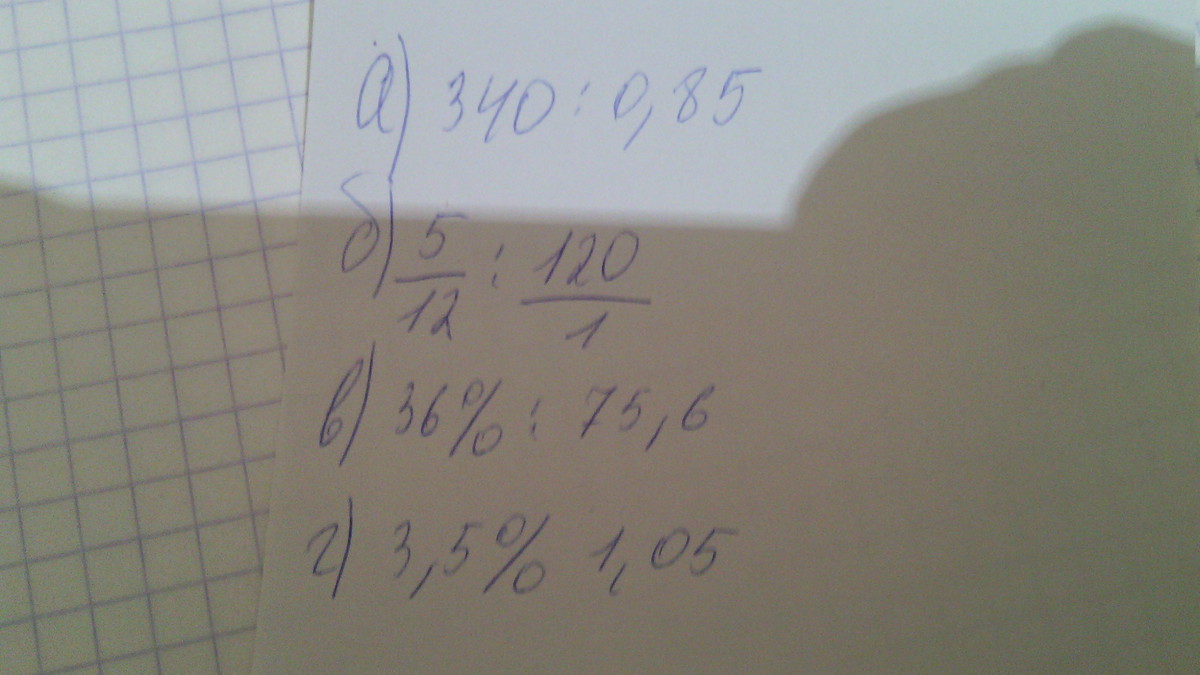 а) 340 : 0,85
б) 5/12 : 120/1
в) 36% : 75,6
г) 3,5% 1,05